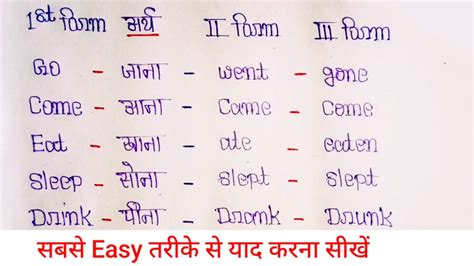 1st form अर्थ II Form III Form
Go - जाना - went - gone
Come - आना - Came - Come
Eat - खाना - ate - eaten
Sleep - सोना - slept - slept
Drink - पीना - Drank - Drunk
सबसे Easy तरीके से याद करना सीखें